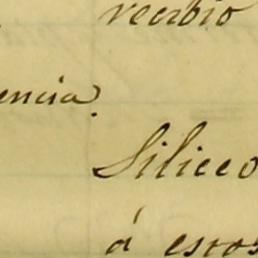 recibio
encia.
Siliceo
á estos